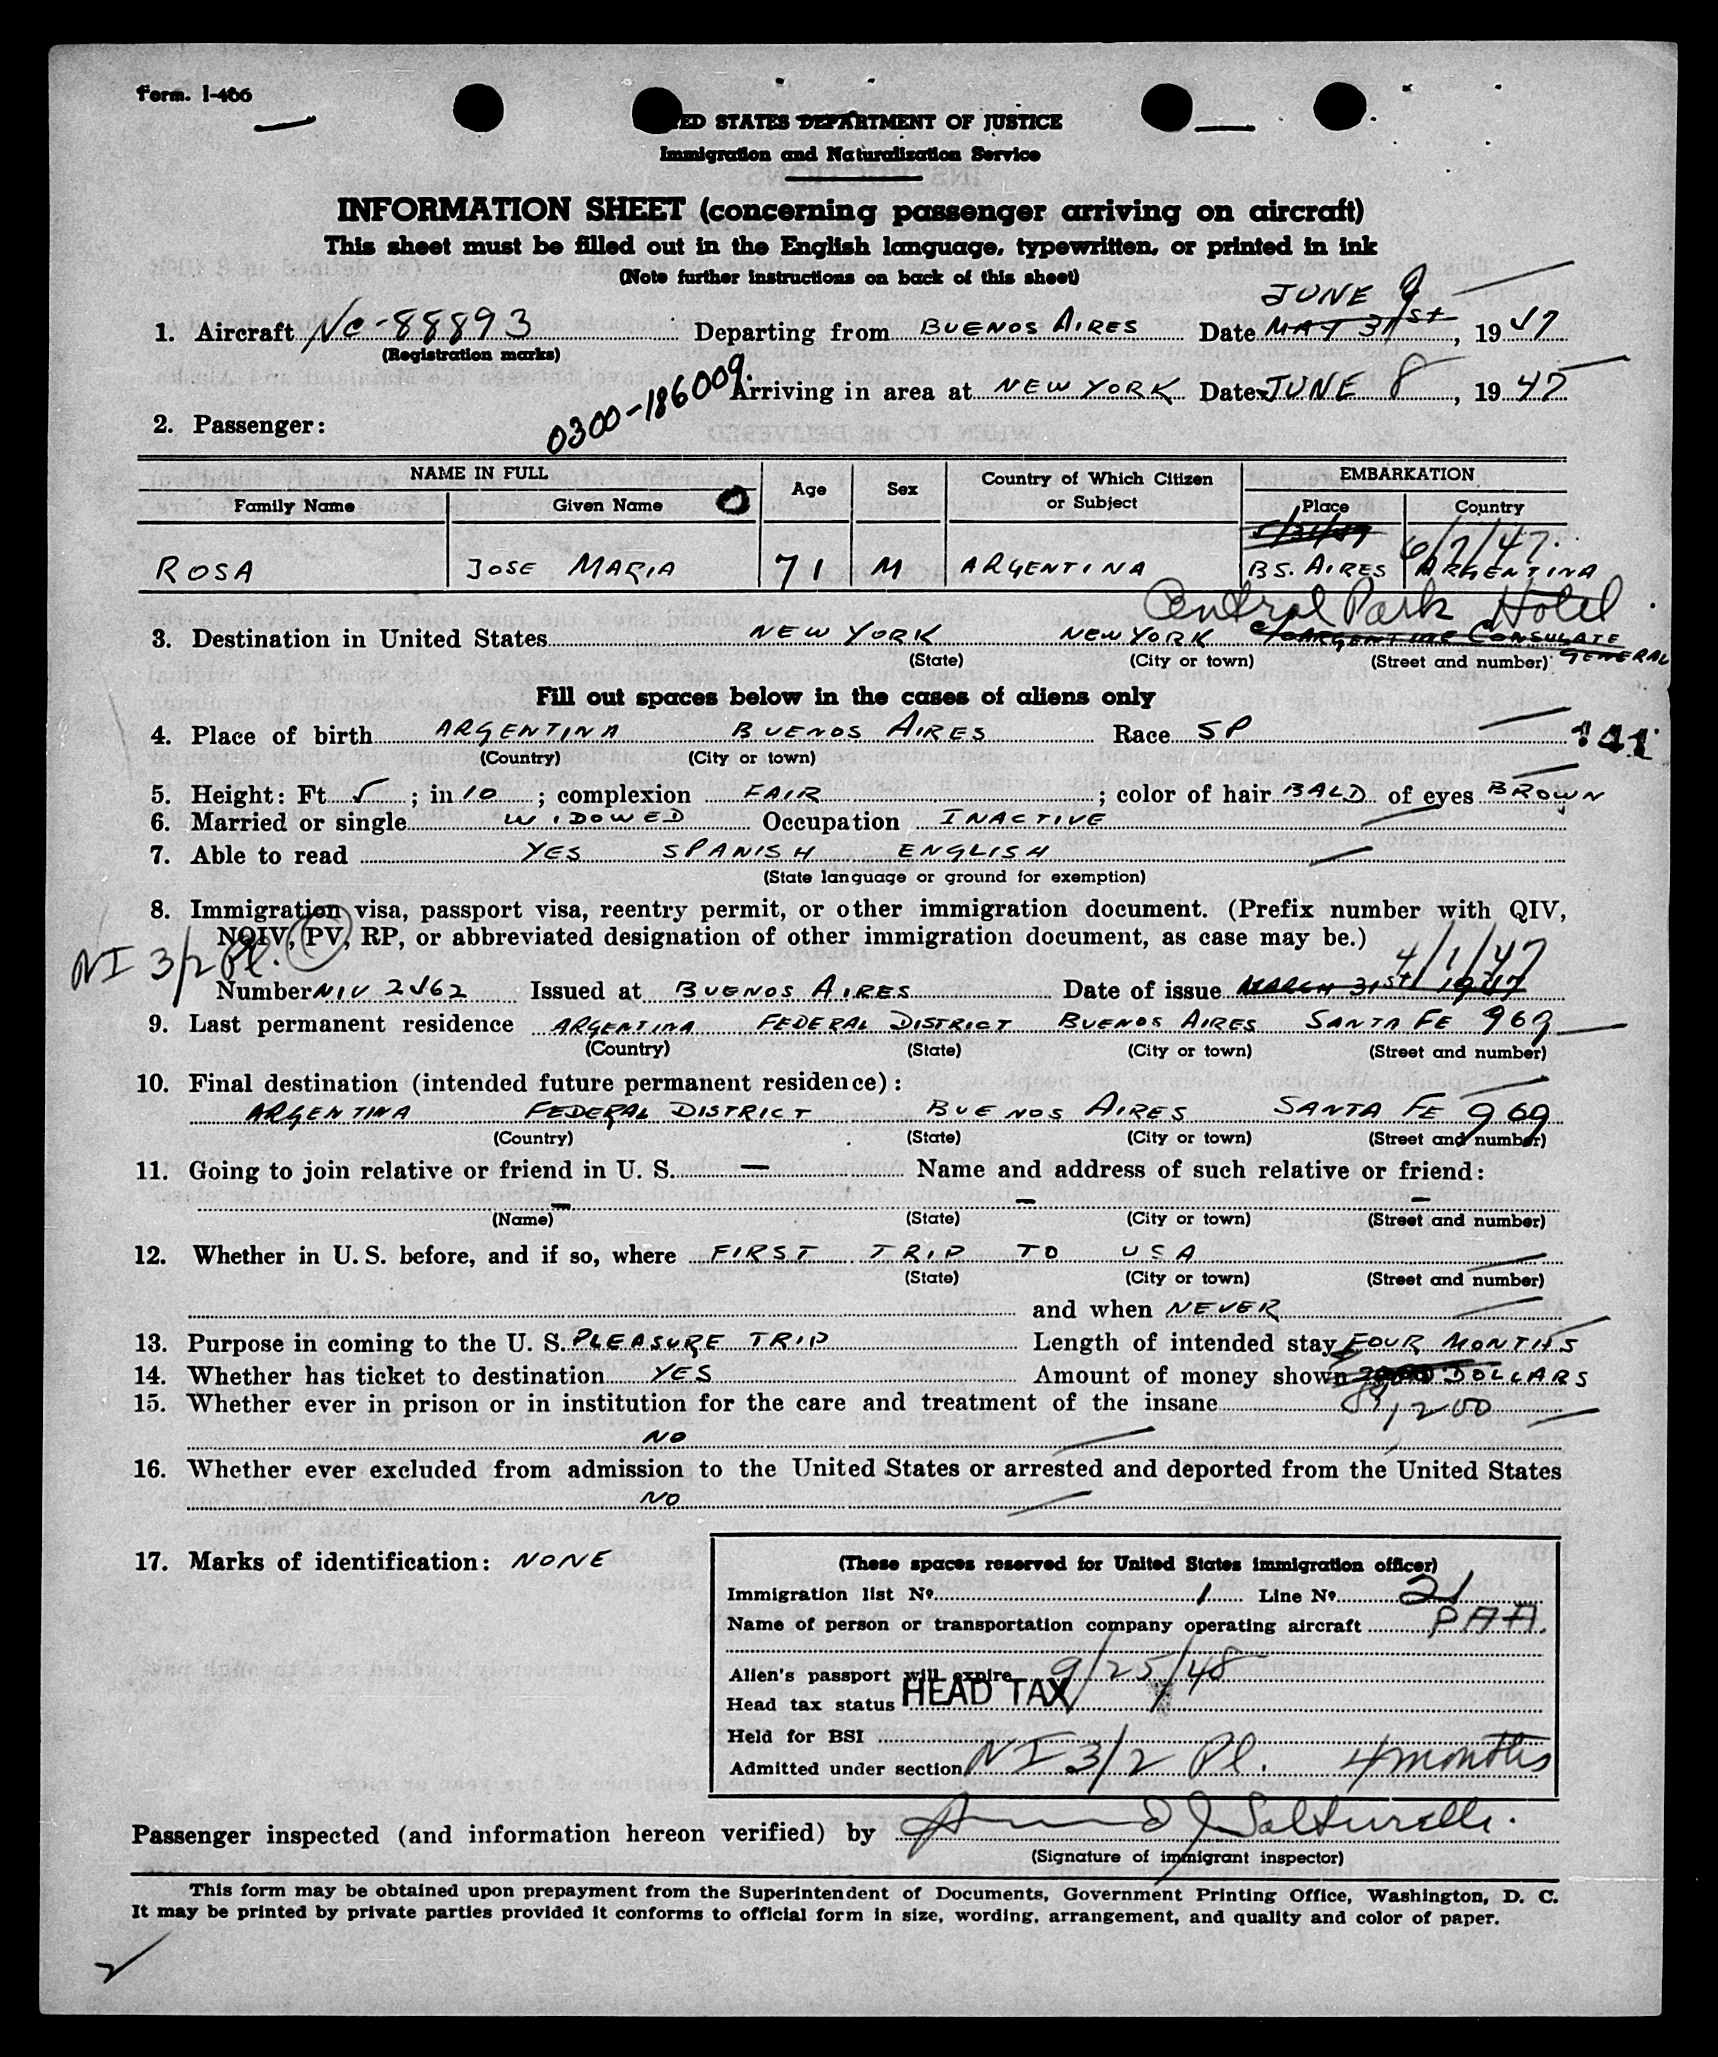 Form. I-466
UNITED STATES DEPARTMENT OF JUSTICE
Immigration and Naturalization Service
INFORMATION SHEET (concerning passenger arriving on aircraft)
This sheet must be filled out in the English language, typewritten, or printed in ink
(Note further instructions on back of this sheet)
JUNE 9
1. Aircraft NC-88893 Departing from BUENOS AIRES Date MAY 31st, 1947
(Registration marks)
0300-186009.
Arriving in area at NEW YORK Date JUNE 8, 1947
2. Passenger:
NAME IN FULL Age Sex Country of Which Citizen or Subject EMBARKATION
Family Name Given Name Place Country
5/31/47 6/7/47.
ROSA JOSE MARIA 71 M ARGENTINA BS. AIRES ARGENTINA
Central Park Hotel
3. Destination in United States NEW YORK NEW YORK c/o ARGENTINE CONSULATE GENERAL
(State) (City or town) (Street and number)
Fill out spaces below in the cases of aliens only
4. Place of birth ARGENTINA BUENOS AIRES Race SP
(Country) (City or town)
5. Height: Ft. 5; in 10; complexion FAIR; color of hair BALD of eyes BROWN
6. Married or single WIDOWED Occupation INACTIVE
7. Able to read YES SPANISH ENGLISH
(State language or ground for exemption)
8. Immigration visa, passport visa, reentry permit, or other immigration document. (Prefix number with QIV,
NQIV, PV, RP, or abbreviated designation of other immigration document, as case may be.)
NI 3/2 Pl. 4/1/47
Number NIV 2562 Issued at BUENOS AIRES Date of issue MARCH 31st 1947
9. Last permanent residence ARGENTINA FEDERAL DISTRICT BUENOS AIRES SANTA FE 969
(Country) (State) (City or town) (Street and number)
10. Final destination (intended future permanent residence):
ARGENTINA FEDERAL DISTRICT BUENOS AIRES SANTA FE 969
(Country) (State) (City or town) (Street and number)
11. Going to join relative or friend in U. S. — Name and address of such relative or friend:
— — —
(Name) (State) (City or town) (Street and number)
12. Whether in U. S. before, and if so, where FIRST TRIP TO USA
(State) (City or town) (Street and number)
and when NEVER
13. Purpose in coming to the U. S. PLEASURE TRIP Length of intended stay FOUR MONTHS
14. Whether has ticket to destination YES Amount of money shown DOLLARS
15. Whether ever in prison or in institution for the care and treatment of the insane 1200
NO
16. Whether ever excluded from admission to the United States or arrested and deported from the United States
NO
17. Marks of identification: NONE
(These spaces reserved for United States immigration officer)
Immigration list No. 1 Line No. 21
Name of person or transportation company operating aircraft PAA.
Alien's passport will expire 9/25/48
Head tax status HEAD TAX
Held for BSI
Admitted under section NI 3/2 Pl. 4 months
Passenger inspected (and information hereon verified) by
(Signature of immigrant inspector)
This form may be obtained upon prepayment from the Superintendent of Documents, Government Printing Office, Washington, D. C.
It may be printed by private parties provided it conforms to official form in size, wording, arrangement, and quality and color of paper.